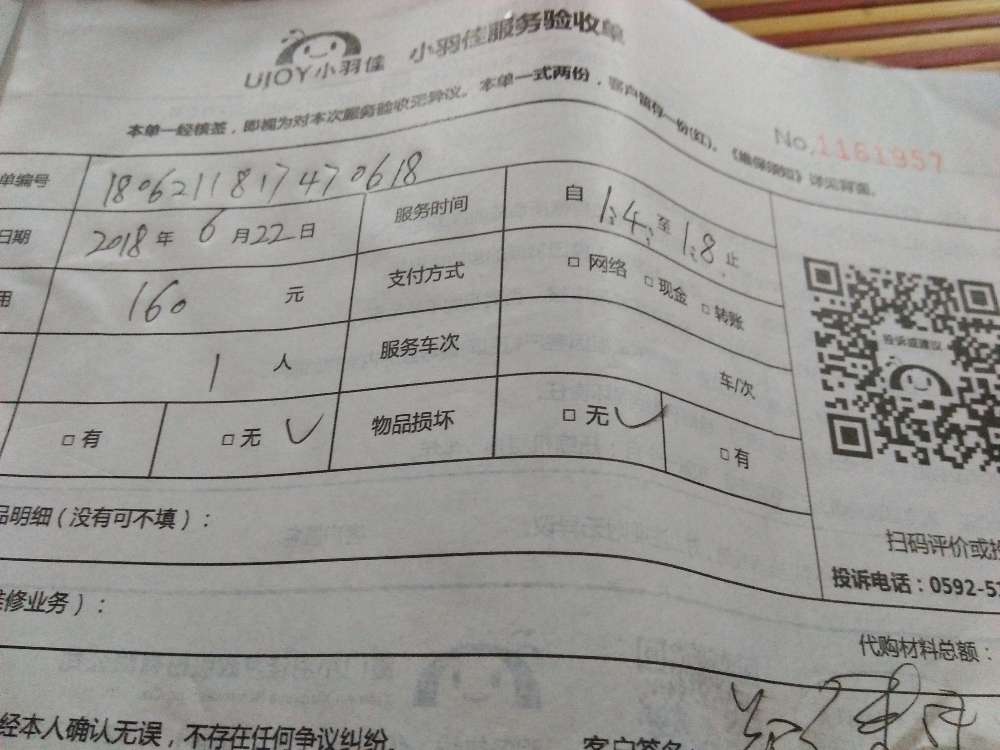 UJOY小羽佳 小羽佳服务验收单
本单一经核签，即视为对本次服务验收无异议。本单一式两份，客户留存一份(红)。《维保须知》详见背面。
No.1161957
单编号 180621181747.0618
日期 2018年6月22日 服务时间 自 1:4: 至 1:8 止
用 160 元 支付方式 □ 网络 □ 现金 □ 转账
1 人 服务车次 车/次
□ 有 □ 无 物品损坏 □ 无 □ 有
投诉或建议
品明细（没有可不填）：
扫码评价或投
投诉电话：0592-5
维修业务）：
代购材料总额：
经本人确认无误，不存在任何争议纠纷。
客户签名：